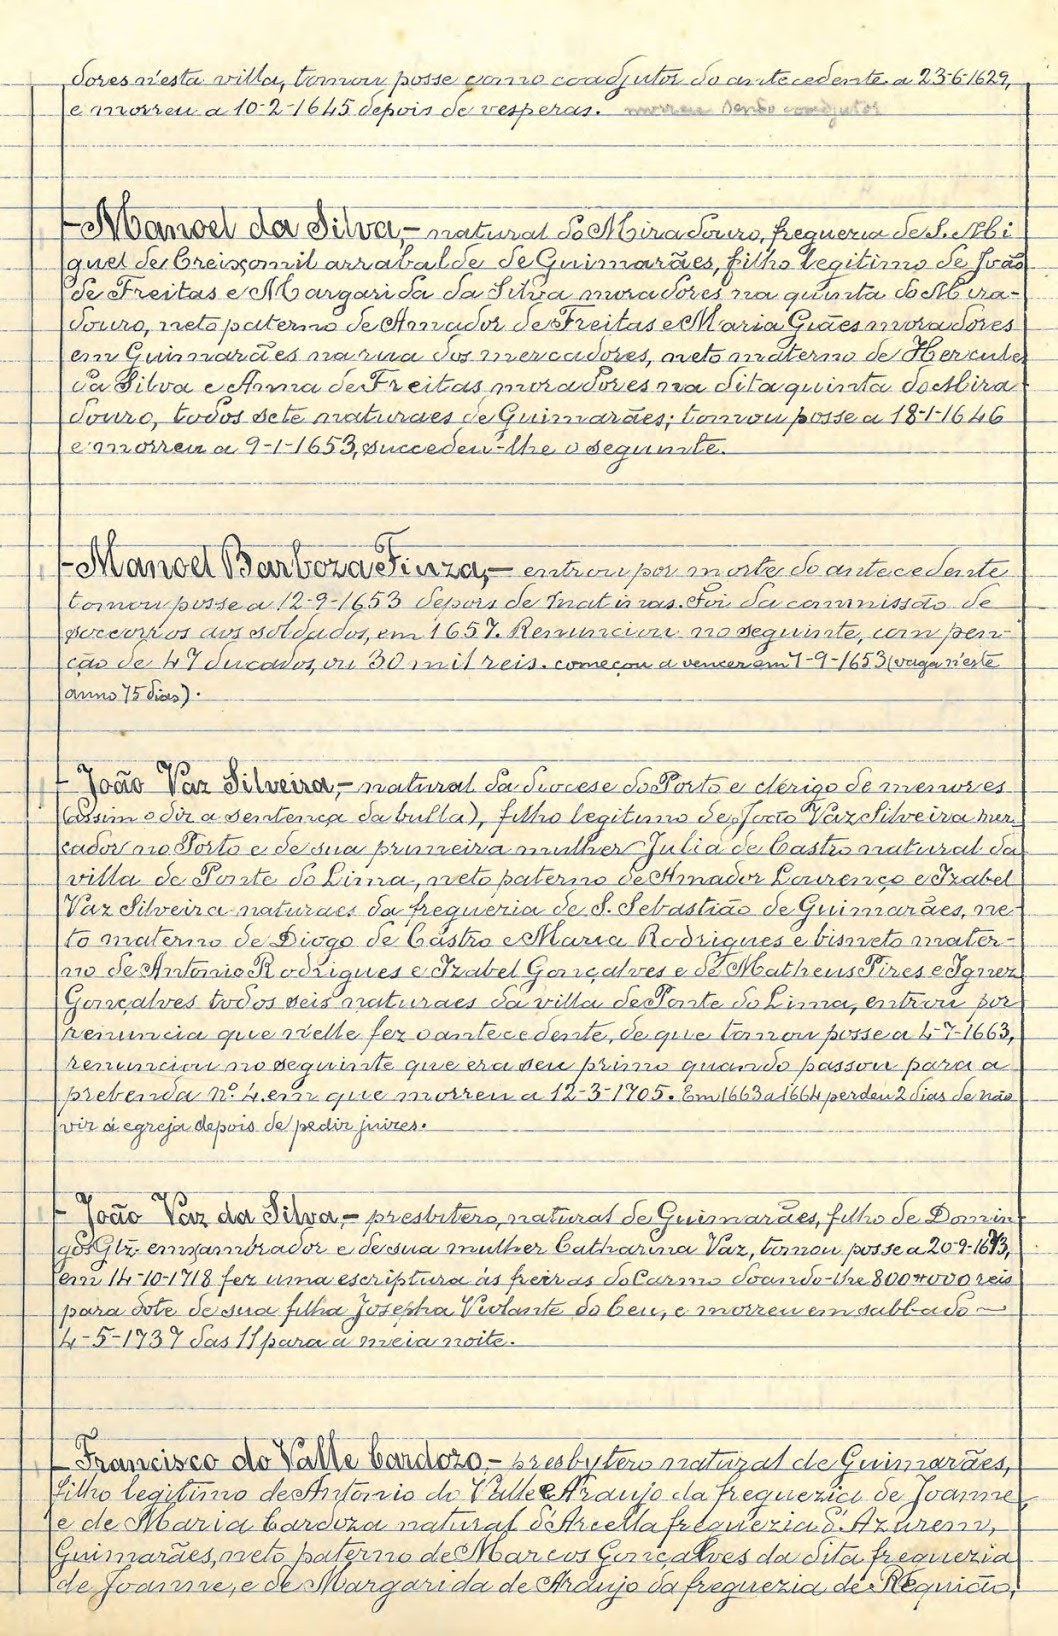 dores n'esta villa, tomou posse como coadjutor do antecedente a 23-6-1629,
e morreu a 10-2-1645 depois de vesperas. morreu sendo coadjutor
-Manoel da Silva,- natural do Miradouro, freguezia de S. Mi
guel de Creixomil arrabalde de Guimarães, filho legitimo de João
de Freitas e Margarida da Silva moradores na quinta do Mira-
douro, neto paterno de Amador de Freitas e Maria Giães moradores
em Guimarães na rua dos mercadores, neto materno de Hercules
da Silva e Anna de Freitas moradores na dita quinta do Mira
douro, todos sete naturaes de Guimarães; tomou posse a 18-1-1646
e morreu a 9-1-1653, succedeu-lhe o seguinte.
-Manoel Barboza Fiuza,- entrou por morte do antecedente
tomou posse a 12-9-1653 depois de matinas. Foi da commissão de
soccorros aos soldados, em 1657. Renunciou no seguinte, com pen-
ção de 47 ducados, ou 30 mil reis. começou a vencer em 7-9-1653 (vaga n'este
anno 75 dias).
- João Vaz Silveira,- natural da diocese do Porto e clérigo de menores
(assim o diz a sentença da bulla), filho legitimo de João Vaz Silveira mer-
cador no Porto e de sua primeira mulher Julia de Castro natural da
villa de Ponte do Lima, neto paterno de Amador Lourenço e Izabel
Vaz Silveira naturaes da freguezia de S. Sebastião de Guimarães, ne-
to materno de Diogo de Castro e Maria Rodrigues e bisneto mater-
no de Antonio Rodrigues e Izabel Gonçalves e de Matheus Pires e Ignez
Gonçalves todos seis naturaes da villa de Ponte do Lima, entrou por
renuncia que n'elle fez o antecedente, de que tomou posse a 4-7-1663,
renunciou no seguinte que era seu primo quando passou para a
prebenda nº 4 em que morreu a 12-3-1705. Em 1663 a 1664 perdeu 2 dias de não
vir á egreja depois de pedir juizes.
- João Vaz da Silva,- presbitero, natural de Guimarães, filho de Domin
gos Glz. ensamblador e de sua mulher Catharina Vaz, tomou posse a 20-9-1673,
em 14-10-1718 fez uma escriptura ás freiras do Carmo doando-lhe 800#000 reis
para dote de sua filha Josepha Violante do Ceu, e morreu em sabbado
4-5-1737 das 11 para a meia noite.
- Francisco do Valle Cardozo,- presbytero natural de Guimarães,
filho legitimo de Antonio do Valle e Araujo da freguezia de Joanne,
e de Maria Cardoza natural d'Arcella freguezia d'Azurem,
Guimarães, neto paterno de Marcos Gonçalves da dita freguezia
de Joanne, e de Margarida de Araujo da freguezia de Requião,